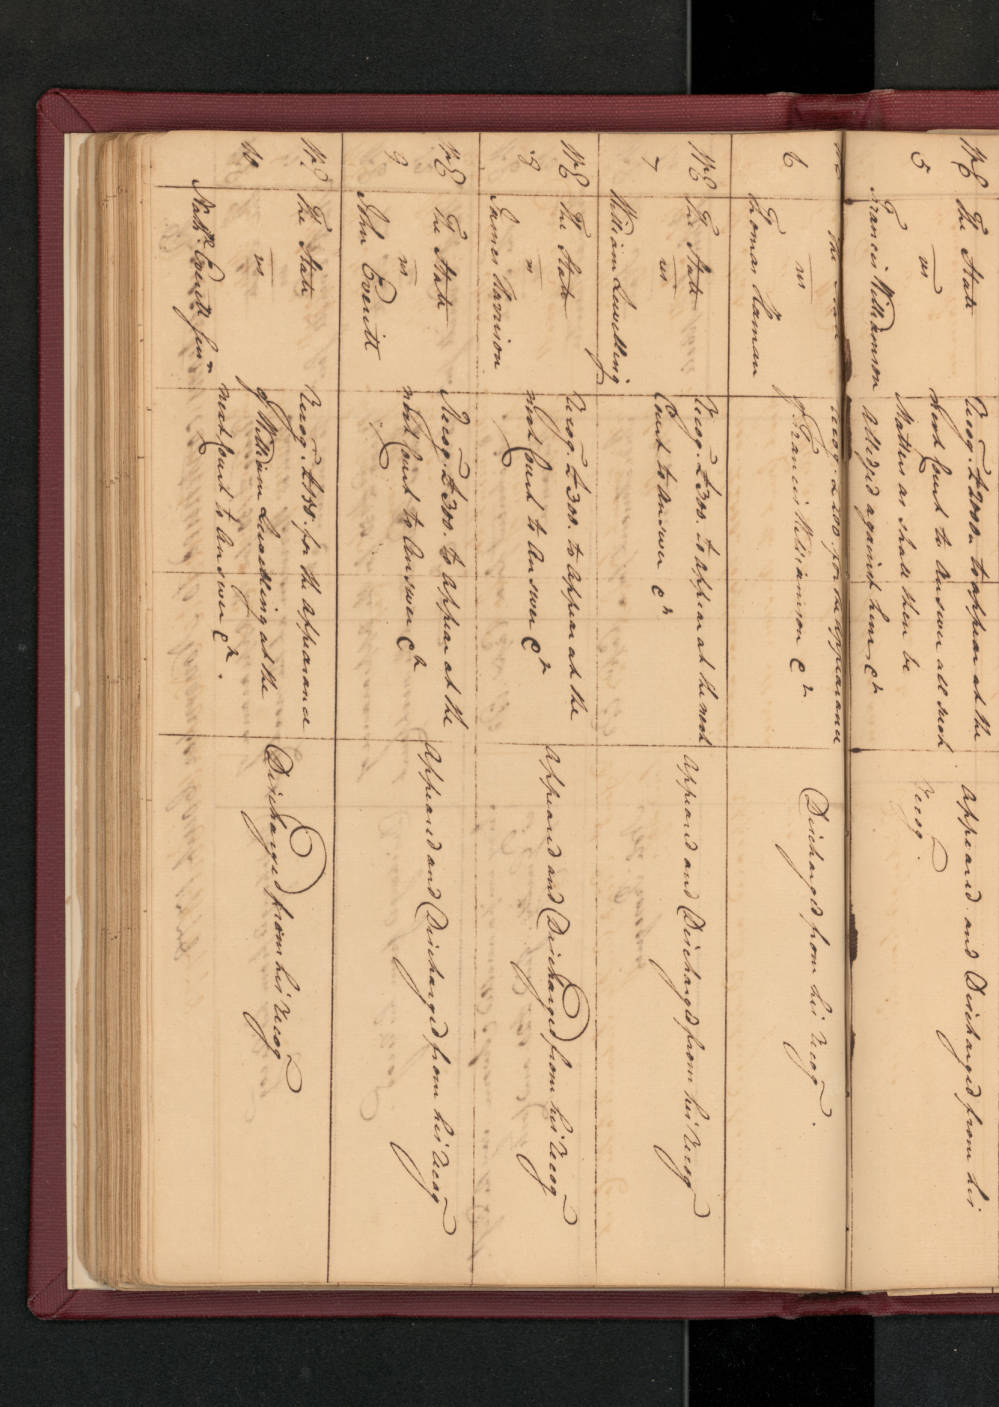 WE The State Recog. £2000 to appear at the Appeared and Discharged from his
5 vs next Court to Answer all such Recog.
Matters as shall then be
Francis Williamson Alledged against him &c
The State Recog. £200 for the appearance Discharged from his Recog.
6 vs of Francis Williamson &c
Thomas Haman
WE The State Recog. £300. to appear at the next Appeared and Discharged from his Recog
7 vs Court to Answer &c
William Lewelling
WE The State Recog. £300. to Appear at the Appeared and Discharged from his Recog
8 vs next Court to Answer &c
James Harrison
WE The State Recog. £300. to appear at the Appeared and Discharged from his Recog
9 vs next Court to Answer &c
John Everitt
WE The State Recog. £150. for the appearance Discharged from his Recog
10 vs of William Lewelling at the
next Court to Answer &c.
Nathl. Everitt Senr